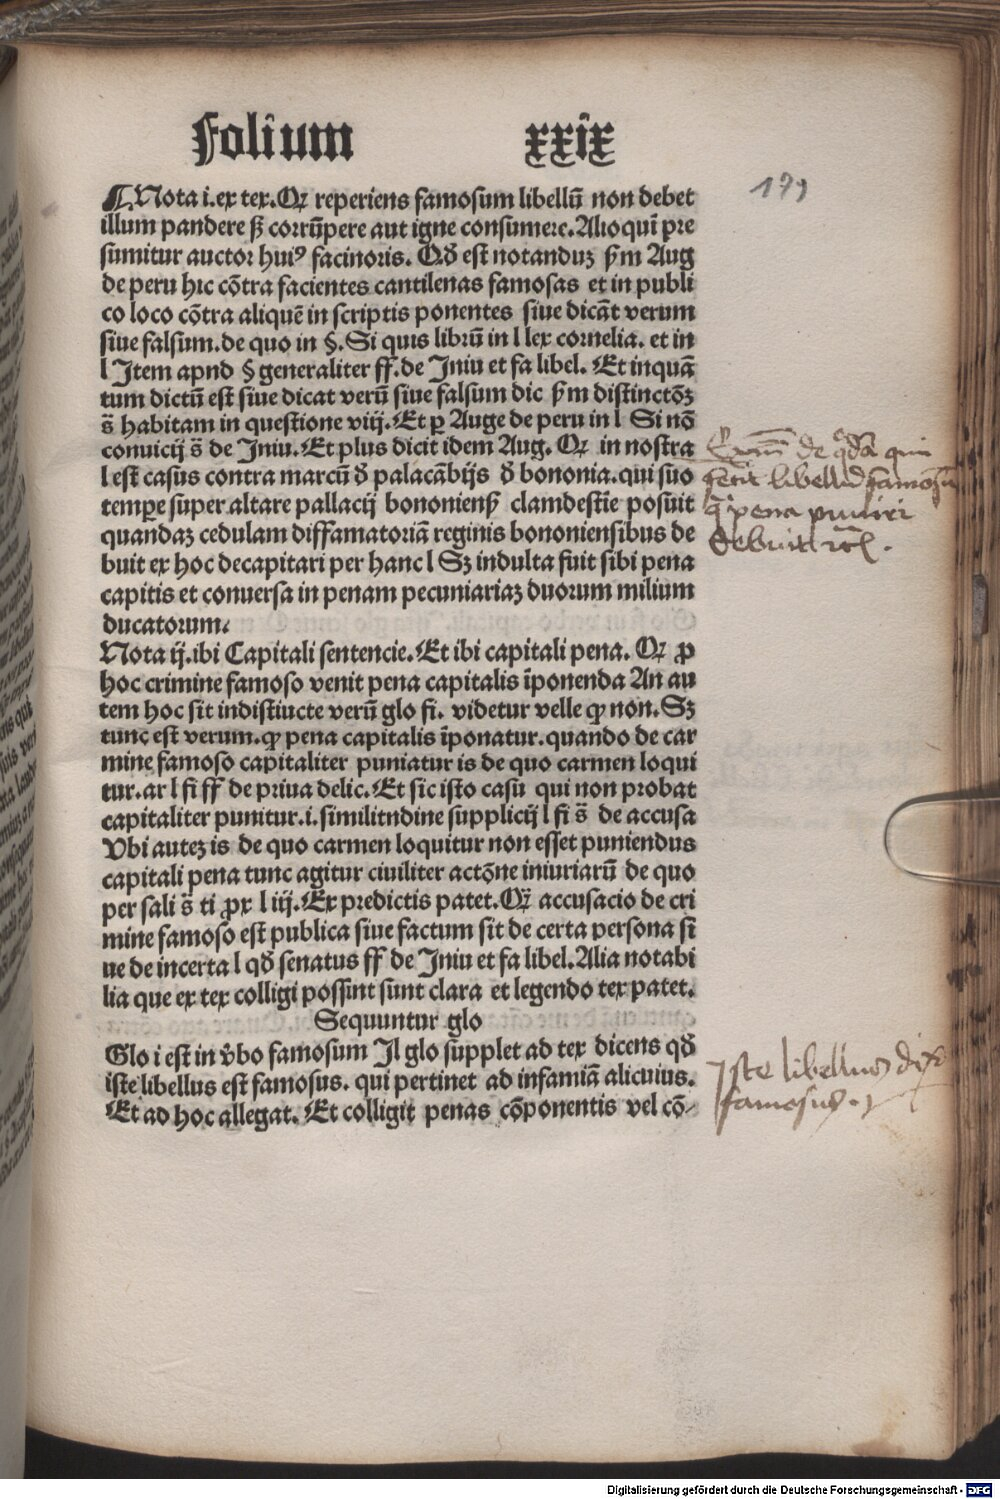 Folium xxix
179
¶ Nota i. ex tex. Qꝛ reperiens famosum libellū non debet
illum pandere sꝫ corrūpere aut igne consumere. Alioquī pre
sumitur auctor huiꝰ facinoris. Qđ est notanduꝫ ẜm Aug
de peru hic cōtra facientes cantilenas famosas et in publi
co loco cōtra aliquē in scriptis ponentes siue dicāt verum
siue falsum. de quo in §. Si quis librū in l lex cornelia. et in
l Item apnd § generaliter ff. de Iniu et fa libel. Et inquā
tum dictū est siue dicat verū siue falsum dic ẜm distinctōꝫ
s̄ habitam in questione viij. Et ꝑ Auge de peru in l Si nō
conuicij s̄ de Iniu. Et plus dicit idem Aug. Qꝛ in nostra
l est casus contra marcū đ palacābijs đ bononia. qui suo
temꝑe super altare pallacij bononienß clamdestīe posuit
quandaꝫ cedulam diffamatoriā reginis bononiensibus de
buit ex hoc decapitari per hanc l Sꝫ indulta fuit sibi pena
capitis et conuersa in penam pecuniariaꝫ duorum milium
ducatorum.
Nota ij. ibi Capitali sentencie. Et ibi capitali pena. Qꝛ ꝓ
hoc crimine famoso venit pena capitalis īponenda An au
tem hoc sit indistiucte verū glo fi. videtur velle ꝙ non. Sꝫ
tunc est verum. ꝙ pena capitalis īponatur. quando de car
mine famoso capitaliter puniatur is de quo carmen loqui
tur. ar l fi ff de priua delic. Et sic isto casu qui non probat
capitaliter punitur. i. similitndine supplicij l fi s̄ de accusa
Vbi auteꝫ is de quo carmen loquitur non esset puniendus
capitali pena tunc agitur ciuiliter actōne iniuriarū de quo
per sali s̄ ti ꝓx l iij. Ex predictis patet. Qꝛ accusacio de cri
mine famoso est publica siue factum sit de certa persona si
ue de incerta l qđ senatus ff de Iniu et fa libel. Alia notabi
lia que ex tex colligi possint sunt clara et legendo tex patet.
Sequuntur glo
Glo i est in v̄bo famosum Il glo supplet ad tex dicens qđ
iste libellus est famosus. qui pertinet ad infamiā alicuius.
Et ad hoc allegat. Et colligit penas cōponentis vel cō-
de qđā qui
fecit libellū famosū
pena puniri
debuit
Iste libellus
famosus.
Digitalisierung gefördert durch die Deutsche Forschungsgemeinschaft - DFG